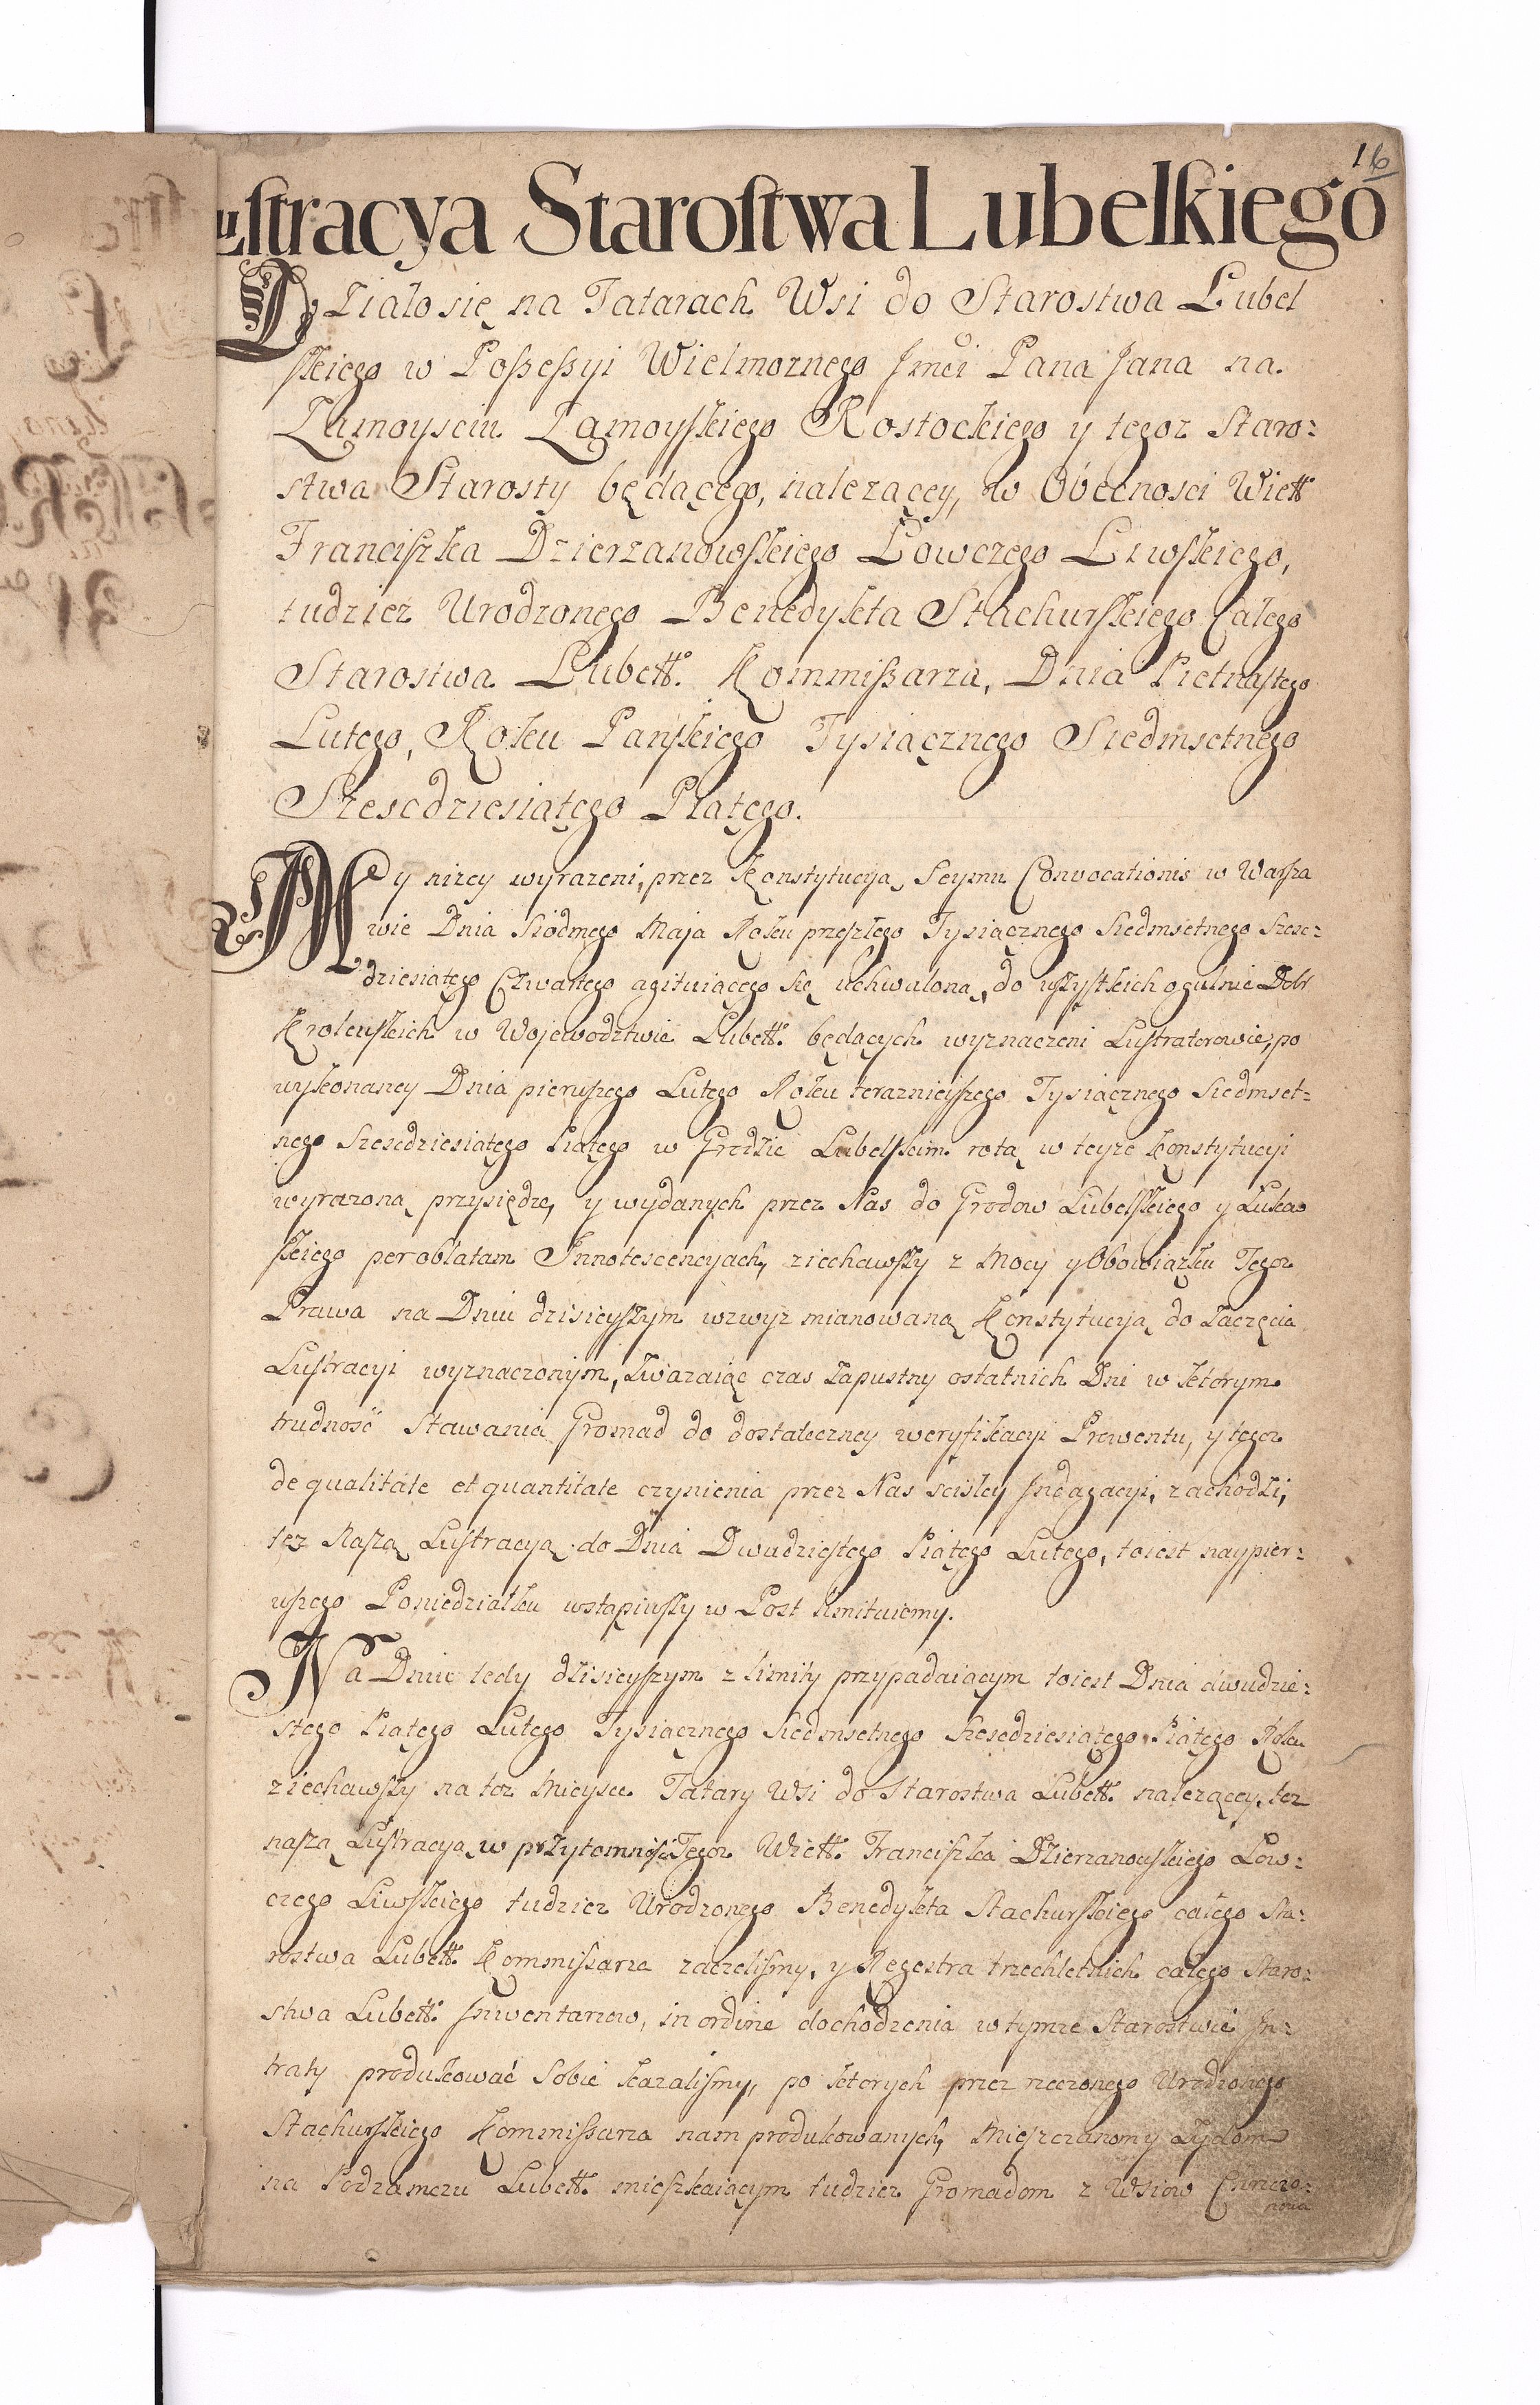 16
ustracya Starostwa Lubelskiego
Działo się na Tatarach Wsi do Starostwa Lubel
skiego w Possessyi Wielmoznego Jmci Pana Jana na
Zamoysciu Zamoyskiego Rostockiego y tegoz Staro:
stwa Starosty będącego, nalezącey, w Obecnosci Wiell
Franciszka Dzierzanowskiego Łowczego Liwskiego,
tudziez Urodzonego Benedykta Stachurskiego Całego
Starostwa Lubell. Kommissarza, Dnia Pietnastego
Lutego, Roku Panskiego Tysiącznego Siedmsetnego
Szescdziesiątego Piątego.
My nizey wyrazeni, przez Konstytucyą Seymu Convocationis w Warsza
wie Dnia Siodmego Maja Roku przeszłego Tysiącznego Siedmsetnego Szesc:
dziesiątego Czwartego agituiącego się uchwaloną, do wszystkich ogulnie Dobr
Krolewskich w Wojewodztwie Lubell. będących wyznaczeni Lustratorowie, po
wykonaney Dnia pierwszego Lutego Roku terazniejszego Tysiącznego Siedmset:
nego Szescdziesiątego Piątego w Grodzie Lubelskim rotą w teyze Konstytucyi
wyrazoną przysiędze, y wydanych przez Nas do Grodow Lubelskiego y Łukow
skiego per oblatam Innotescencyach, ziechawszy z Mocy y Obowiązku Tegoz
Prawa na Dniu dzisieyszym wzwyz mianowaną Konstytucyą do Zaczęcia
Lustracyi wyznaczonym, Zwazaiąc czas Zapustny ostatnich Dni w ktorym
trudność Stawania Gromad do dostateczney weryfikacyi Prowentu, y tegoz
de qualitate et quantitate czynienia przez Nas scisłey Indagacyi, zachodzi,
tęz Naszą Lustracyą do Dnia Dwudziestego Piątego Lutego, toiest naypier:
wszego Poniedziałku wstąpiwszy w Post limituiemy.
Na Dniu tedy dzisieyszym z limity przypadaiącym toiest Dnia dwudzie:
stego Piątego Lutego Tysiącznego Siedmsetnego Szescdziesiątego Piątego Roku
ziechawszy na toz Mieysce Tatary Wsi do Starostwa Lubell. nalezącey, tez
naszą Lustracyą w przytomnosci Tegoz Wiell. Franciszka Dzierzanowskiego Łow:
czego Liwskiego tudziez Urodzonego Benedykta Stachurskiego całego Sta:
rostwa Lubell. Kommissarza zaczelismy, y Regestra trzechletnich całego Staro:
stwa Lubell. Inwentarzow, in ordine dochodzenia w tymze Starostwie In:
traty produkować Sobie kazalismy, po ktorych przez rzeczonego Urodzonego
Stachurskiego Kommissarza nam produkowanych, Mieszczanom y Zydom
na Podzamczu Lubell. mieszkaiącym tudziez Gromadom z Wsiow